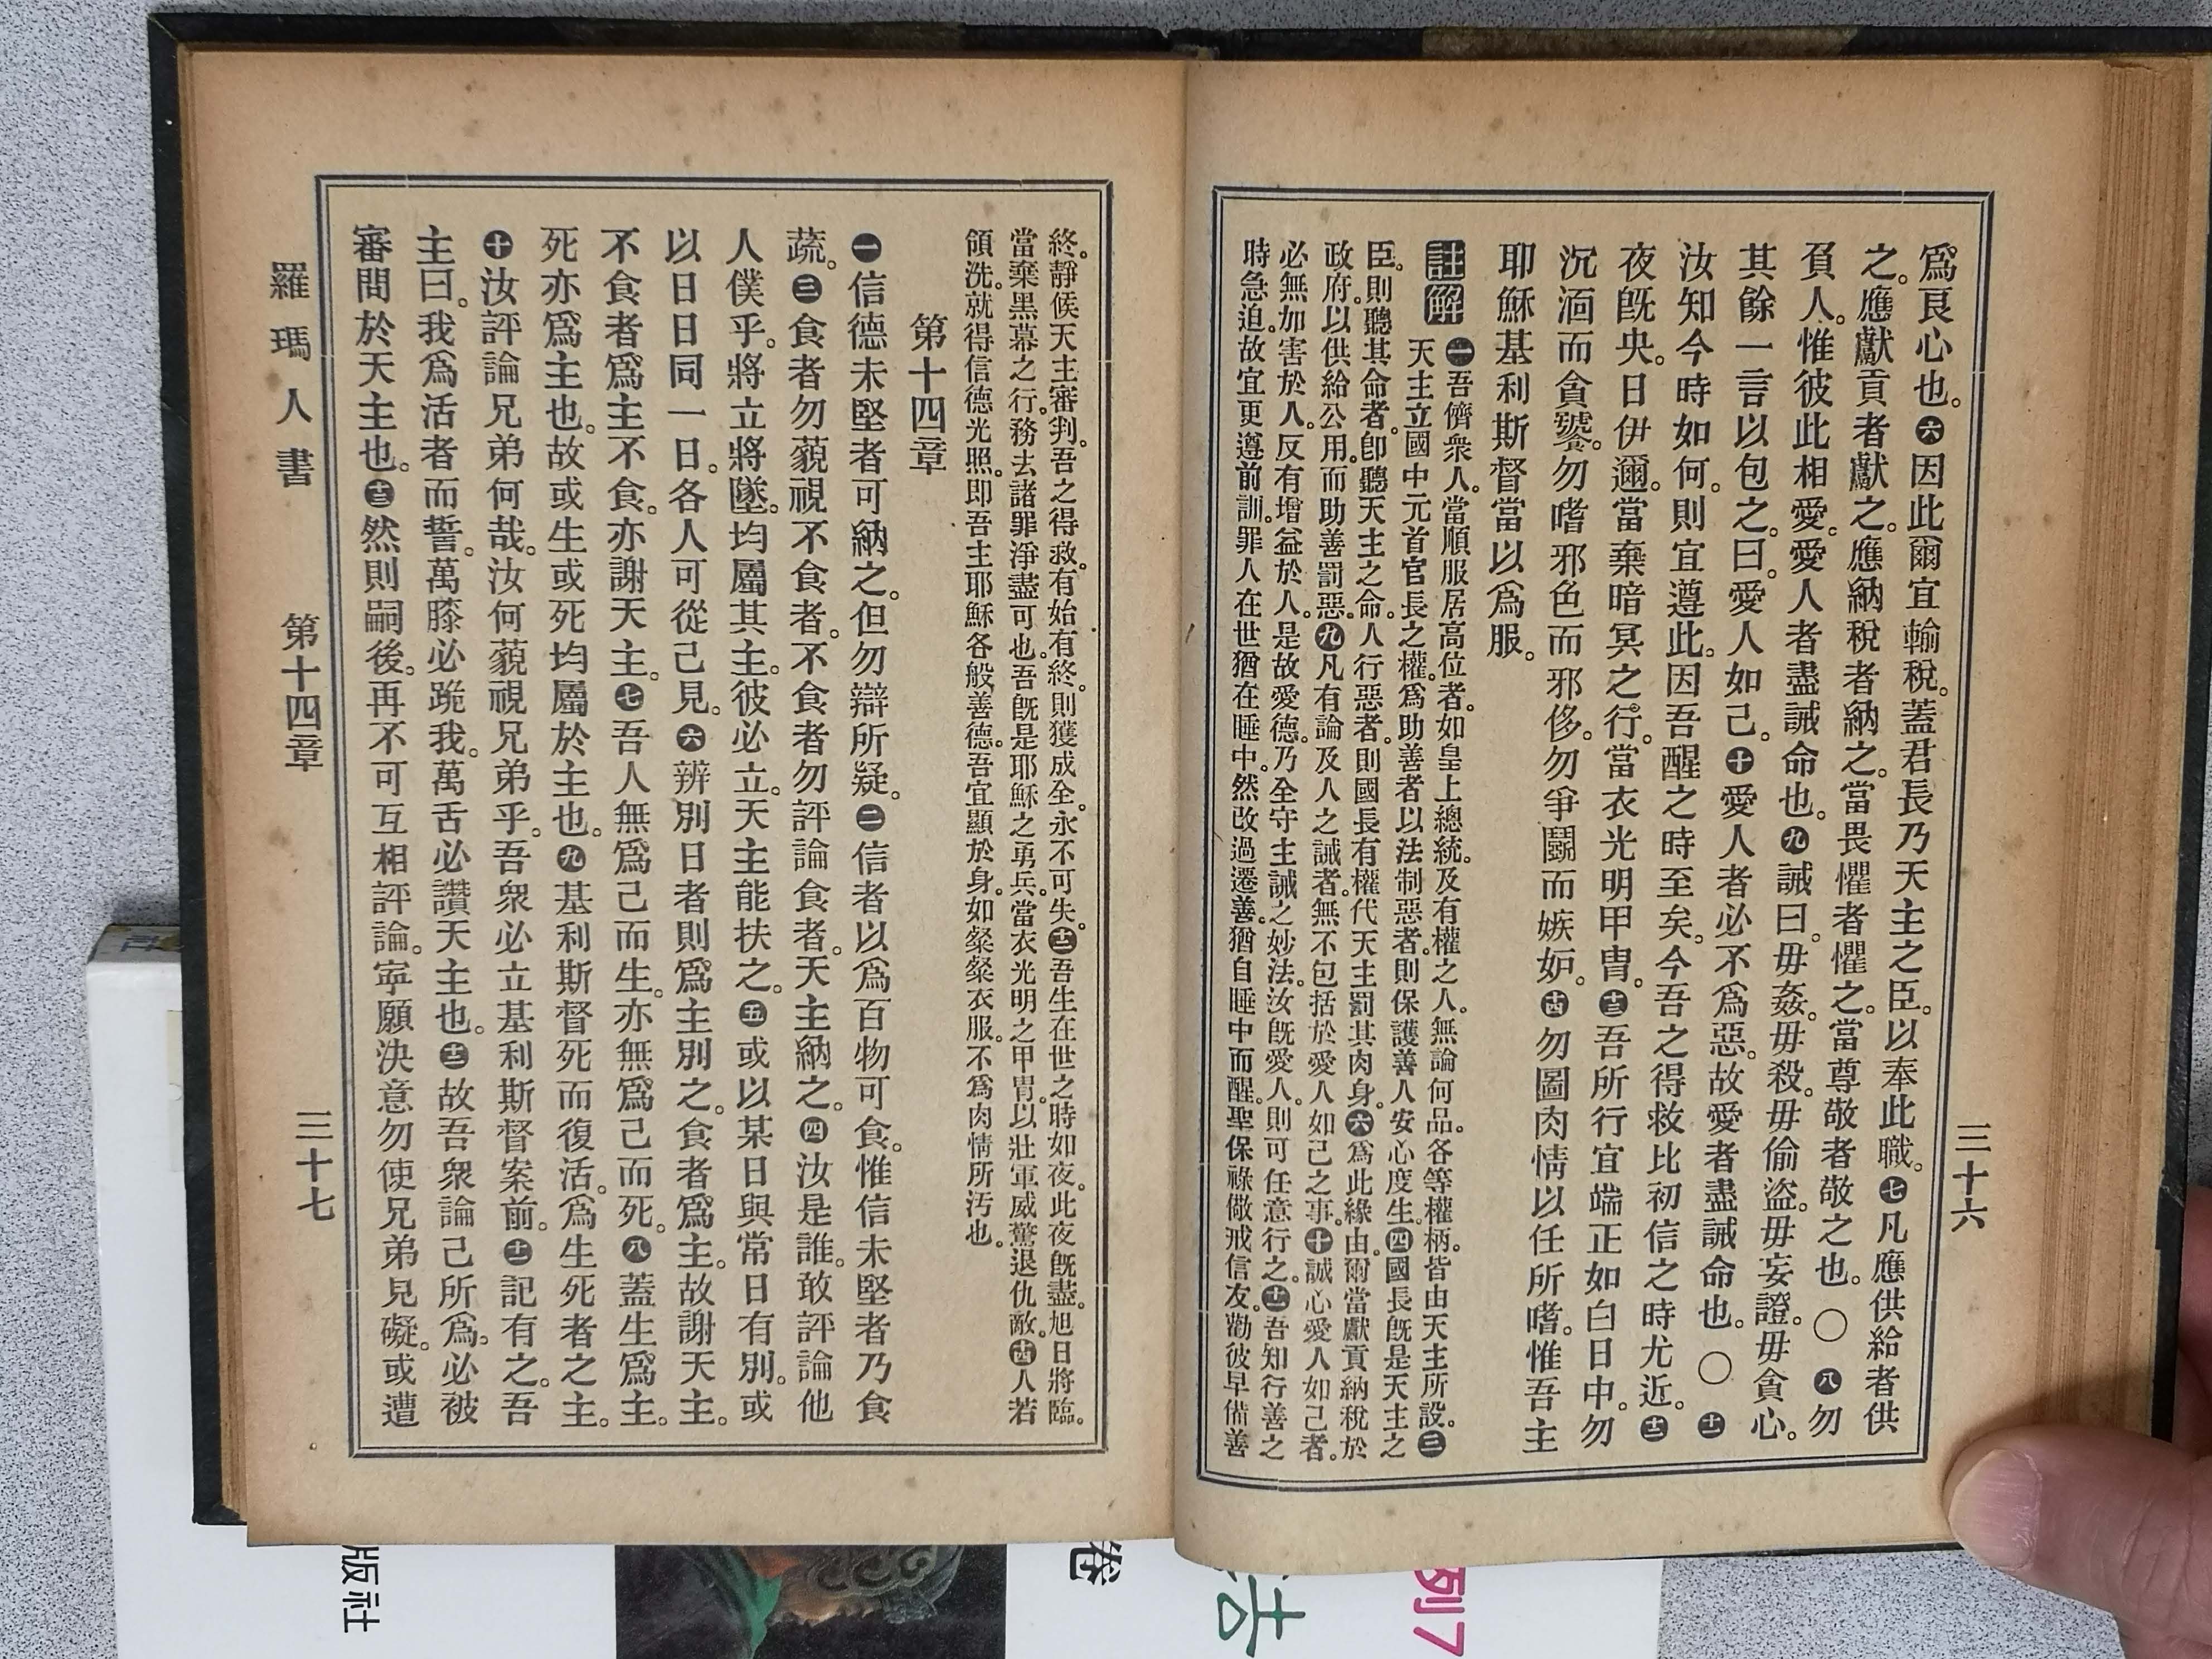 三十六
爲良心也。六因此爾宜輸稅。蓋君長乃天主之臣。以奉此職。七凡應供給者供
之。應獻貢者獻之。應納稅者納之。當畏懼者懼之。當尊敬者敬之也。〇八勿
負人。惟彼此相愛。愛人者盡誡命也。九誡曰。毋姦。毋殺。毋偷盜。毋妄證。毋貪心。
其餘一言以包之。曰。愛人如己。十愛人者必不爲惡。故愛者盡誡命也。〇十一
汝知今時如何。則宜遵此。因吾醒之時至矣。今吾之得救比初信之時尤近。十二
夜旣央。日伊邇。當棄暗冥之行。當衣光明甲冑。十三吾所行宜端正如白日中。勿
沉湎而貪饕。勿嗜邪色而邪侈。勿爭鬭而嫉妒。十四勿圖肉情以任所嗜。惟吾主
耶穌基利斯督當以爲服。
註解 一吾儕衆人。當順服居高位者。如皇上總統。及有權之人。無論何品。各等權柄。皆由天主所設。三
天主立國中元首官長之權。爲助善者以法制惡者。則保護善人安心度生。四國長旣是天主之
臣。則聽其命者。卽聽天主之命。人行惡者。則國長有權代天主罰其肉身。六爲此緣由。爾當獻貢納稅於
政府。以供給公用。而助善罰惡。九凡有論及人之誡者。無不包括於愛人如己之事。十誠心愛人如己者。
必無加害於人。反有增益於人。是故愛德。乃全守主誡之妙法。汝旣愛人。則可任意行之。十一吾知行善之
時急迫。故宜更遵前訓。罪人在世猶在睡中。然改過遷善。猶自睡中而醒。聖保祿儆戒信友。勸彼早備善
終。靜候天主審判。吾之得救。有始有終。則獲成全。永不可失。十二吾生在世之時如夜。此夜旣盡。旭日將臨。
當棄黑幕之行。務去諸罪淨盡可也。吾旣是耶穌之勇兵。當衣光明之甲冑。以壯軍威驚退仇敵。十四人若
領洗。就得信德光照。卽吾主耶穌各般善德。吾宜顯於身。如粲粲衣服。不爲肉情所污也。
第十四章
一信德未堅者可納之。但勿辯所疑。二信者以爲百物可食。惟信未堅者乃食
蔬。三食者勿藐視不食者。不食者勿評論食者。天主納之。四汝是誰。敢評論他
人僕乎。將立將墜。均屬其主。彼必立。天主能扶之。五或以某日與常日有別。或
以日日同一日。各人可從己見。六辨別日者則爲主別之。食者爲主。故謝天主。
不食者爲主不食。亦謝天主。七吾人無爲己而生。亦無爲己而死。八蓋生爲主。
死亦爲主也。故或生或死均屬於主也。九基利斯督死而復活。爲生死者之主。
十汝評論兄弟何哉。汝何藐視兄弟乎。吾衆必立基利斯督案前。十一記有之。吾
主曰。我爲活者而誓。萬膝必跪我。萬舌必讚天主也。十二故吾衆論己所爲。必被
審問於天主也。十三然則嗣後。再不可互相評論。寧願決意勿使兄弟見礙。或遭
羅瑪人書 第十四章 三十七
版社
卷
法
列7